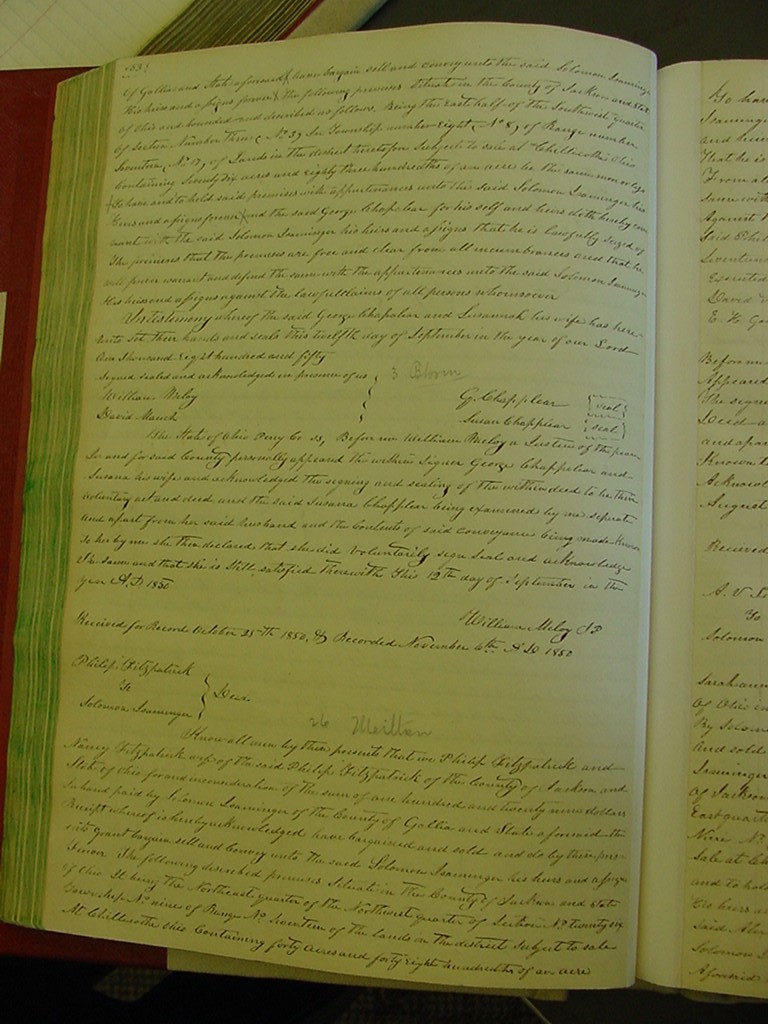 of Gallia and State aforesaid have bargain sell and convey unto the said Solomon Isaminger
His heirs and assigns forever the following premises Situate in the County of Jackson and State
of Ohio and bounded and described as follows. Being the East half of the Southwest quarter
of Section Number Three, No 3, In Township number Eight, No 8, of Range number
Seventeen, No 17, of Lands in the district heretofore Subject to sale at Chillicothe Ohio
Containing Seventy Six acres and Eighty three hundredths of an acre be the same more or less
To have and to hold said premises with appurtenances unto the said Solomon Isaminger his
Heirs and assigns forever and the said George Chaplear for his self and heirs doth hereby cov-
enant with the said Solomon Isaminger his heirs and assigns that he is lawfully seized of
The premises that the premises are free and clear from all incumbrances and that he
will forever warrant and defend the same with the appurtenances unto the said Solomon Isaminger
His heirs and assigns against the lawful claims of all persons whomsoever
In testimony whereof the said George Chaplear and Susannah his wife has here-
unto Set their hands and seals this twelfth day of September in the year of our Lord
One Thousand Eight hundred and fifty
Signed sealed and acknowledged in presence of us
3 Bloom
William Meloy
G. Chapplear seal
David Mauck
Susan Chapplear seal
The State of Ohio Perry Co SS, Before me William Meloy a Justice of the peace
In and for said County personally appeared the within Signer George Chapplear and
Susana his wife and acknowledged the signing and sealing of the within deed to be their
voluntary act and deed and the said Susana Chapplear being examined by me separate
and apart from her said husband and the Contents of said conveyance being made known
to her by me she then declared that she did Voluntarily sign Seal and acknowledge
The same and that she is Still satisfied therewith This 12th day of September in the
year A.D 1850
William Meloy J P
Received for Record October 28th 1850, & Recorded November 6th A D 1850
Philip Fitzpatrick
To
Deed
Solomon Isaminger
26 Milton
Know all men by these presents that we Philip Fitzpatrick and
Nancy Fitzpatrick wife of the said Philip Fitzpatrick of the County of Jackson and
State of Ohio for and in consideration of the sum of one hundred and twenty nine dollars
In hand paid by Solomon Isaminger of the County of Gallia and State aforesaid the
Receipt whereof is hereby acknowledged have bargained and sold and do by these pres-
ents grant bargain sell and Convey unto the said Solomon Isaminger his heirs and assigns
Forever The following described premises Situate in the County of Jackson and State
of Ohio It being the Northeast quarter of the Northwest quarter of Section No twenty six
Township No nine of Range No Seventeen of the lands in the district Subject to sale
At Chillicothe Ohio Containing forty acres and forty Eight hundredths of an acre
To have
Isaminger
and
That he is
From al
Same with
Against
Said
Seventeen
Executed
David
E. H. Ga
Before me
Appeared
The signi
Deed a
and apart
Known t
Acknowl
August
Received
A. V.
To
Solomon
Sarah ann
Of Ohio in
By Solomo
and sold
Isaminger
Of Jackson
East quarte
Nine No
Sale at Chi
and to hold
His heirs an
Said
Solomon
Aforesaid